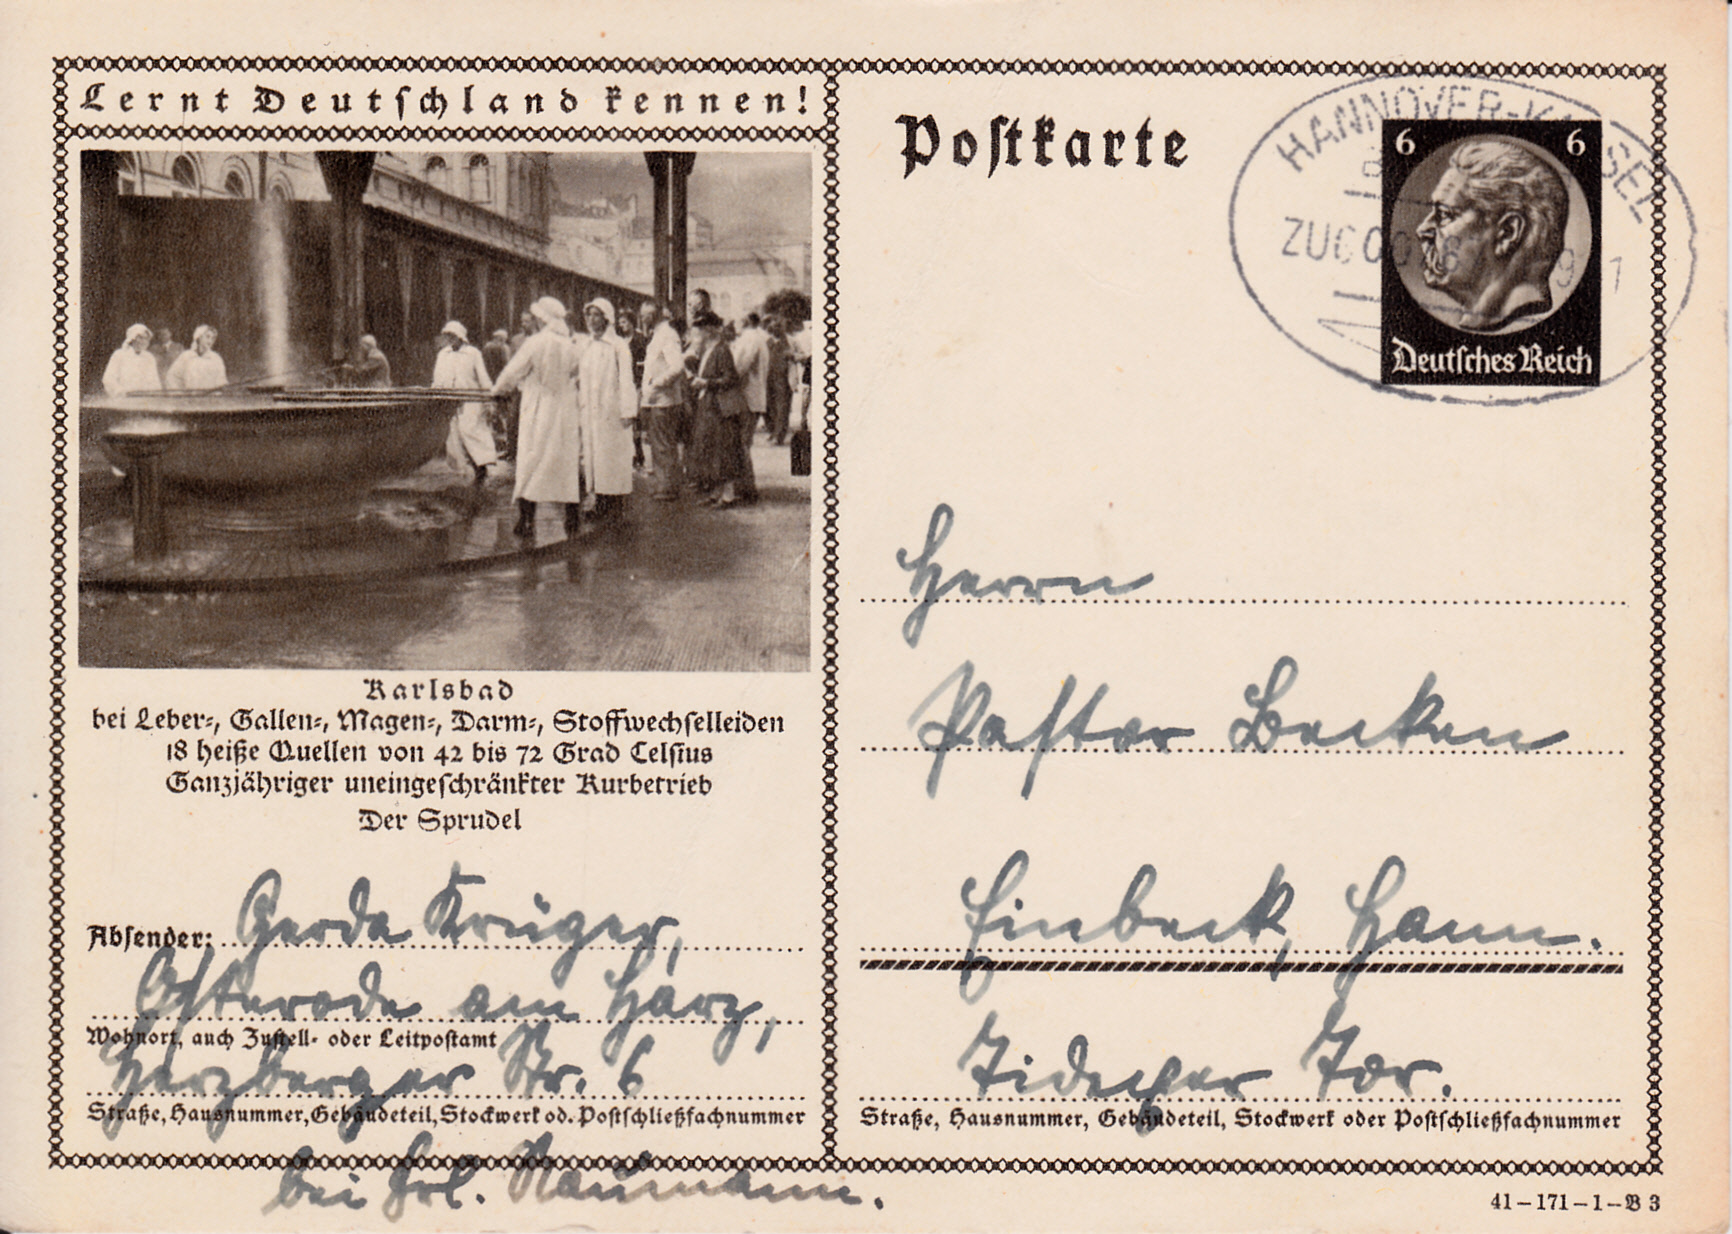 Lernt Deutschland kennen!
Karlsbad
bei Leber-, Gallen-, Magen-, Darm-, Stoffwechselleiden
18 heiße Quellen von 42 bis 72 Grad Celsius
Ganzjähriger uneingeschränkter Kurbetrieb
Der Sprudel
Absender: Gerda Krüger,
Osterode am Harz,
Wohnort, auch Zustell- oder Leitpostamt
Herzberger Str. 6
Straße, Hausnummer, Gebäudeteil, Stockwerk od. Postschließfachnummer
bei Frl. Naumann.
Postkarte
HANNOVER-KASSEL
ZUG
6 6
Deutsches Reich
Herrn
Pastor Becken
Einbeck, Hann.
Tidexer Tor.
Straße, Hausnummer, Gebäudeteil, Stockwerk oder Postschließfachnummer
41-171-1-B 3